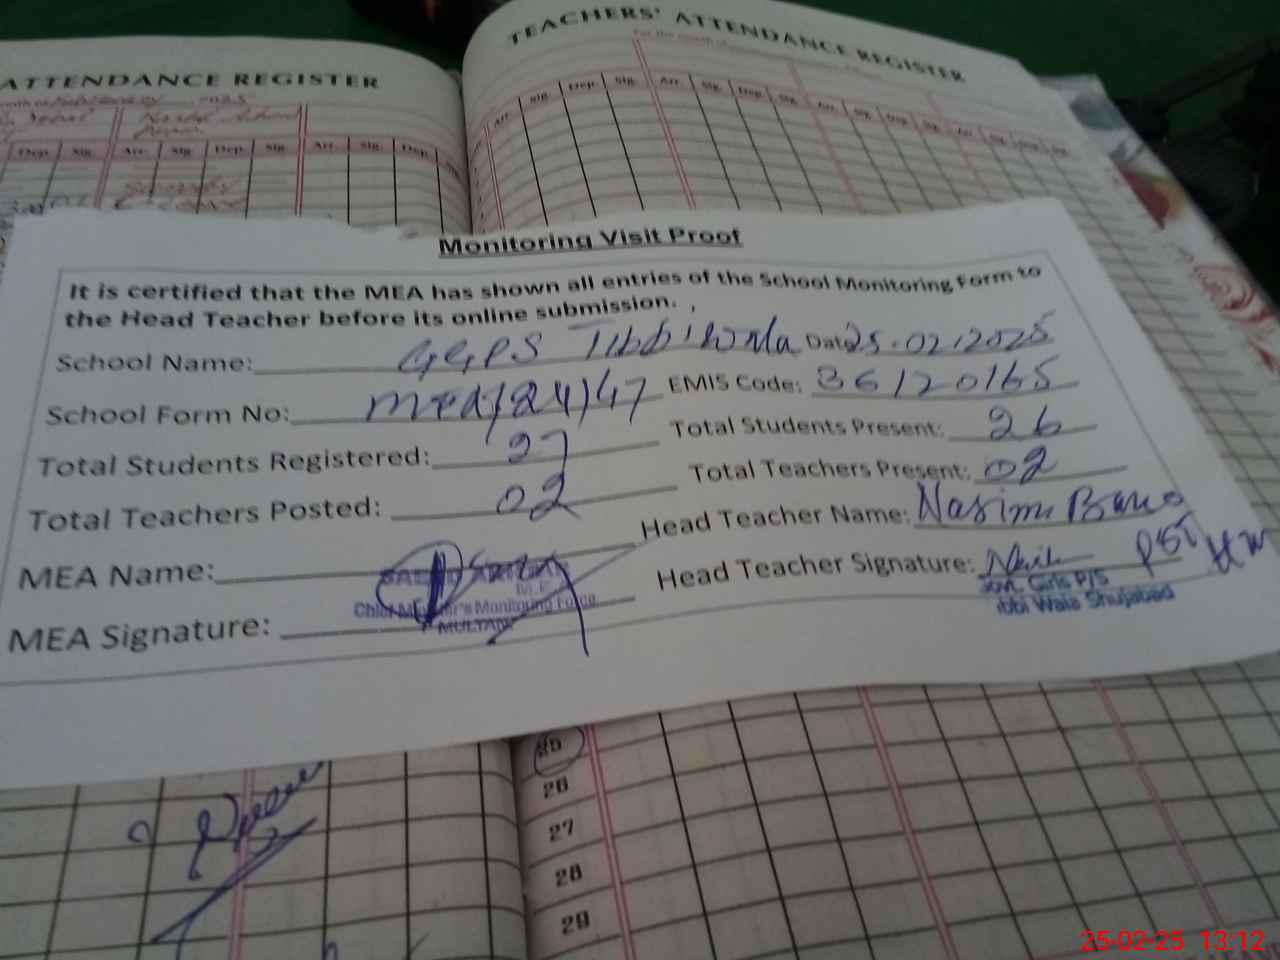 ATTENDANCE REGISTER
TEACHERS' ATTENDANCE REGISTER
For the month of
Dep. Sig. Arr. Sig. Dep. Sig. Arr. Sig. Dep.
Arr. Sig. Dep. Sig. Arr. Sig. Dep. Sig. Arr. Sig. Dep. Sig. Arr. Sig.
Monitoring Visit Proof
It is certified that the MEA has shown all entries of the School Monitoring Form to
the Head Teacher before its online submission.
School Name: GGPS Tibbi Wala Date 25.02.2025
School Form No: mea/24/47 EMIS Code: 36120165
Total Students Registered: 27 Total Students Present: 26
Total Teachers Posted: 02 Total Teachers Present: 02
MEA Name: Head Teacher Name: Nasim Bano
MEA Signature: Head Teacher Signature: PST
Chief Minister's Monitoring Force
MULTAN
Govt. Girls P/S
Tibbi Wala Shujabad
25
26
27
28
29
25-02-25 13:12